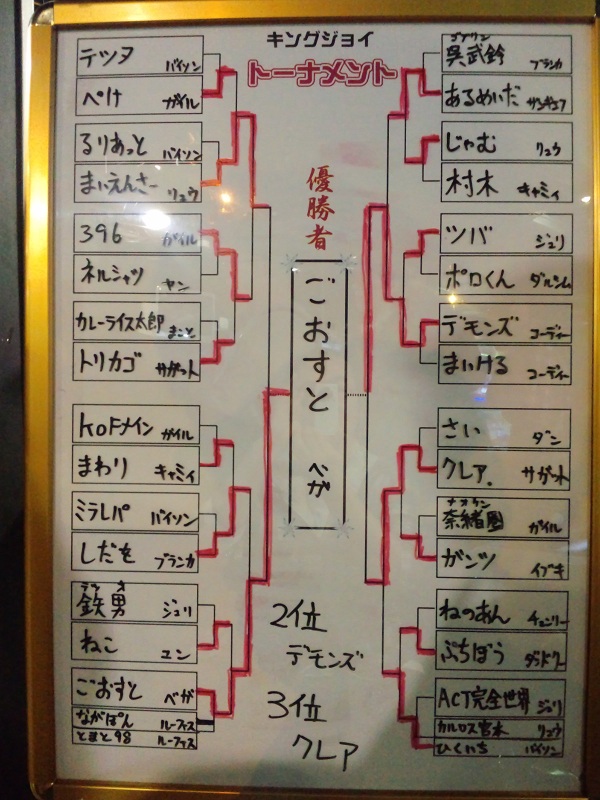 キングジョイ
トーナメント
優勝者
ごおすと ベガ
2位
デモンズ
3位
クレア
テツヌ バイソン
ぺけ ガイル
るりあっと バイソン
まいえんさー リュウ
396 ガイル
ネルシャツ ヤン
カレーライス太郎 まこと
トリカゴ サガット
KOFメイン ガイル
まわり キャミィ
ミラレパ バイソン
しだを ブランカ
鉄男 ジュリ
ねこ ユン
ごおすと ベガ
ながぽん ルーファス
とまと98 ルーファス
呉武鈴 ブランカ
あるめいだ
じゃむ リュウ
村木 キャミィ
ツバ ジュリ
ポロくん ダルシム
デモンズ コーディー
まいける コーディー
さい ダン
クレア. サガット
ガイル
ガンツ イブキ
ねのあん チュンリー
ぷちぼう
ACT完全世界 ジュリ
カルロス宮本 リュウ
ひくいち バイソン